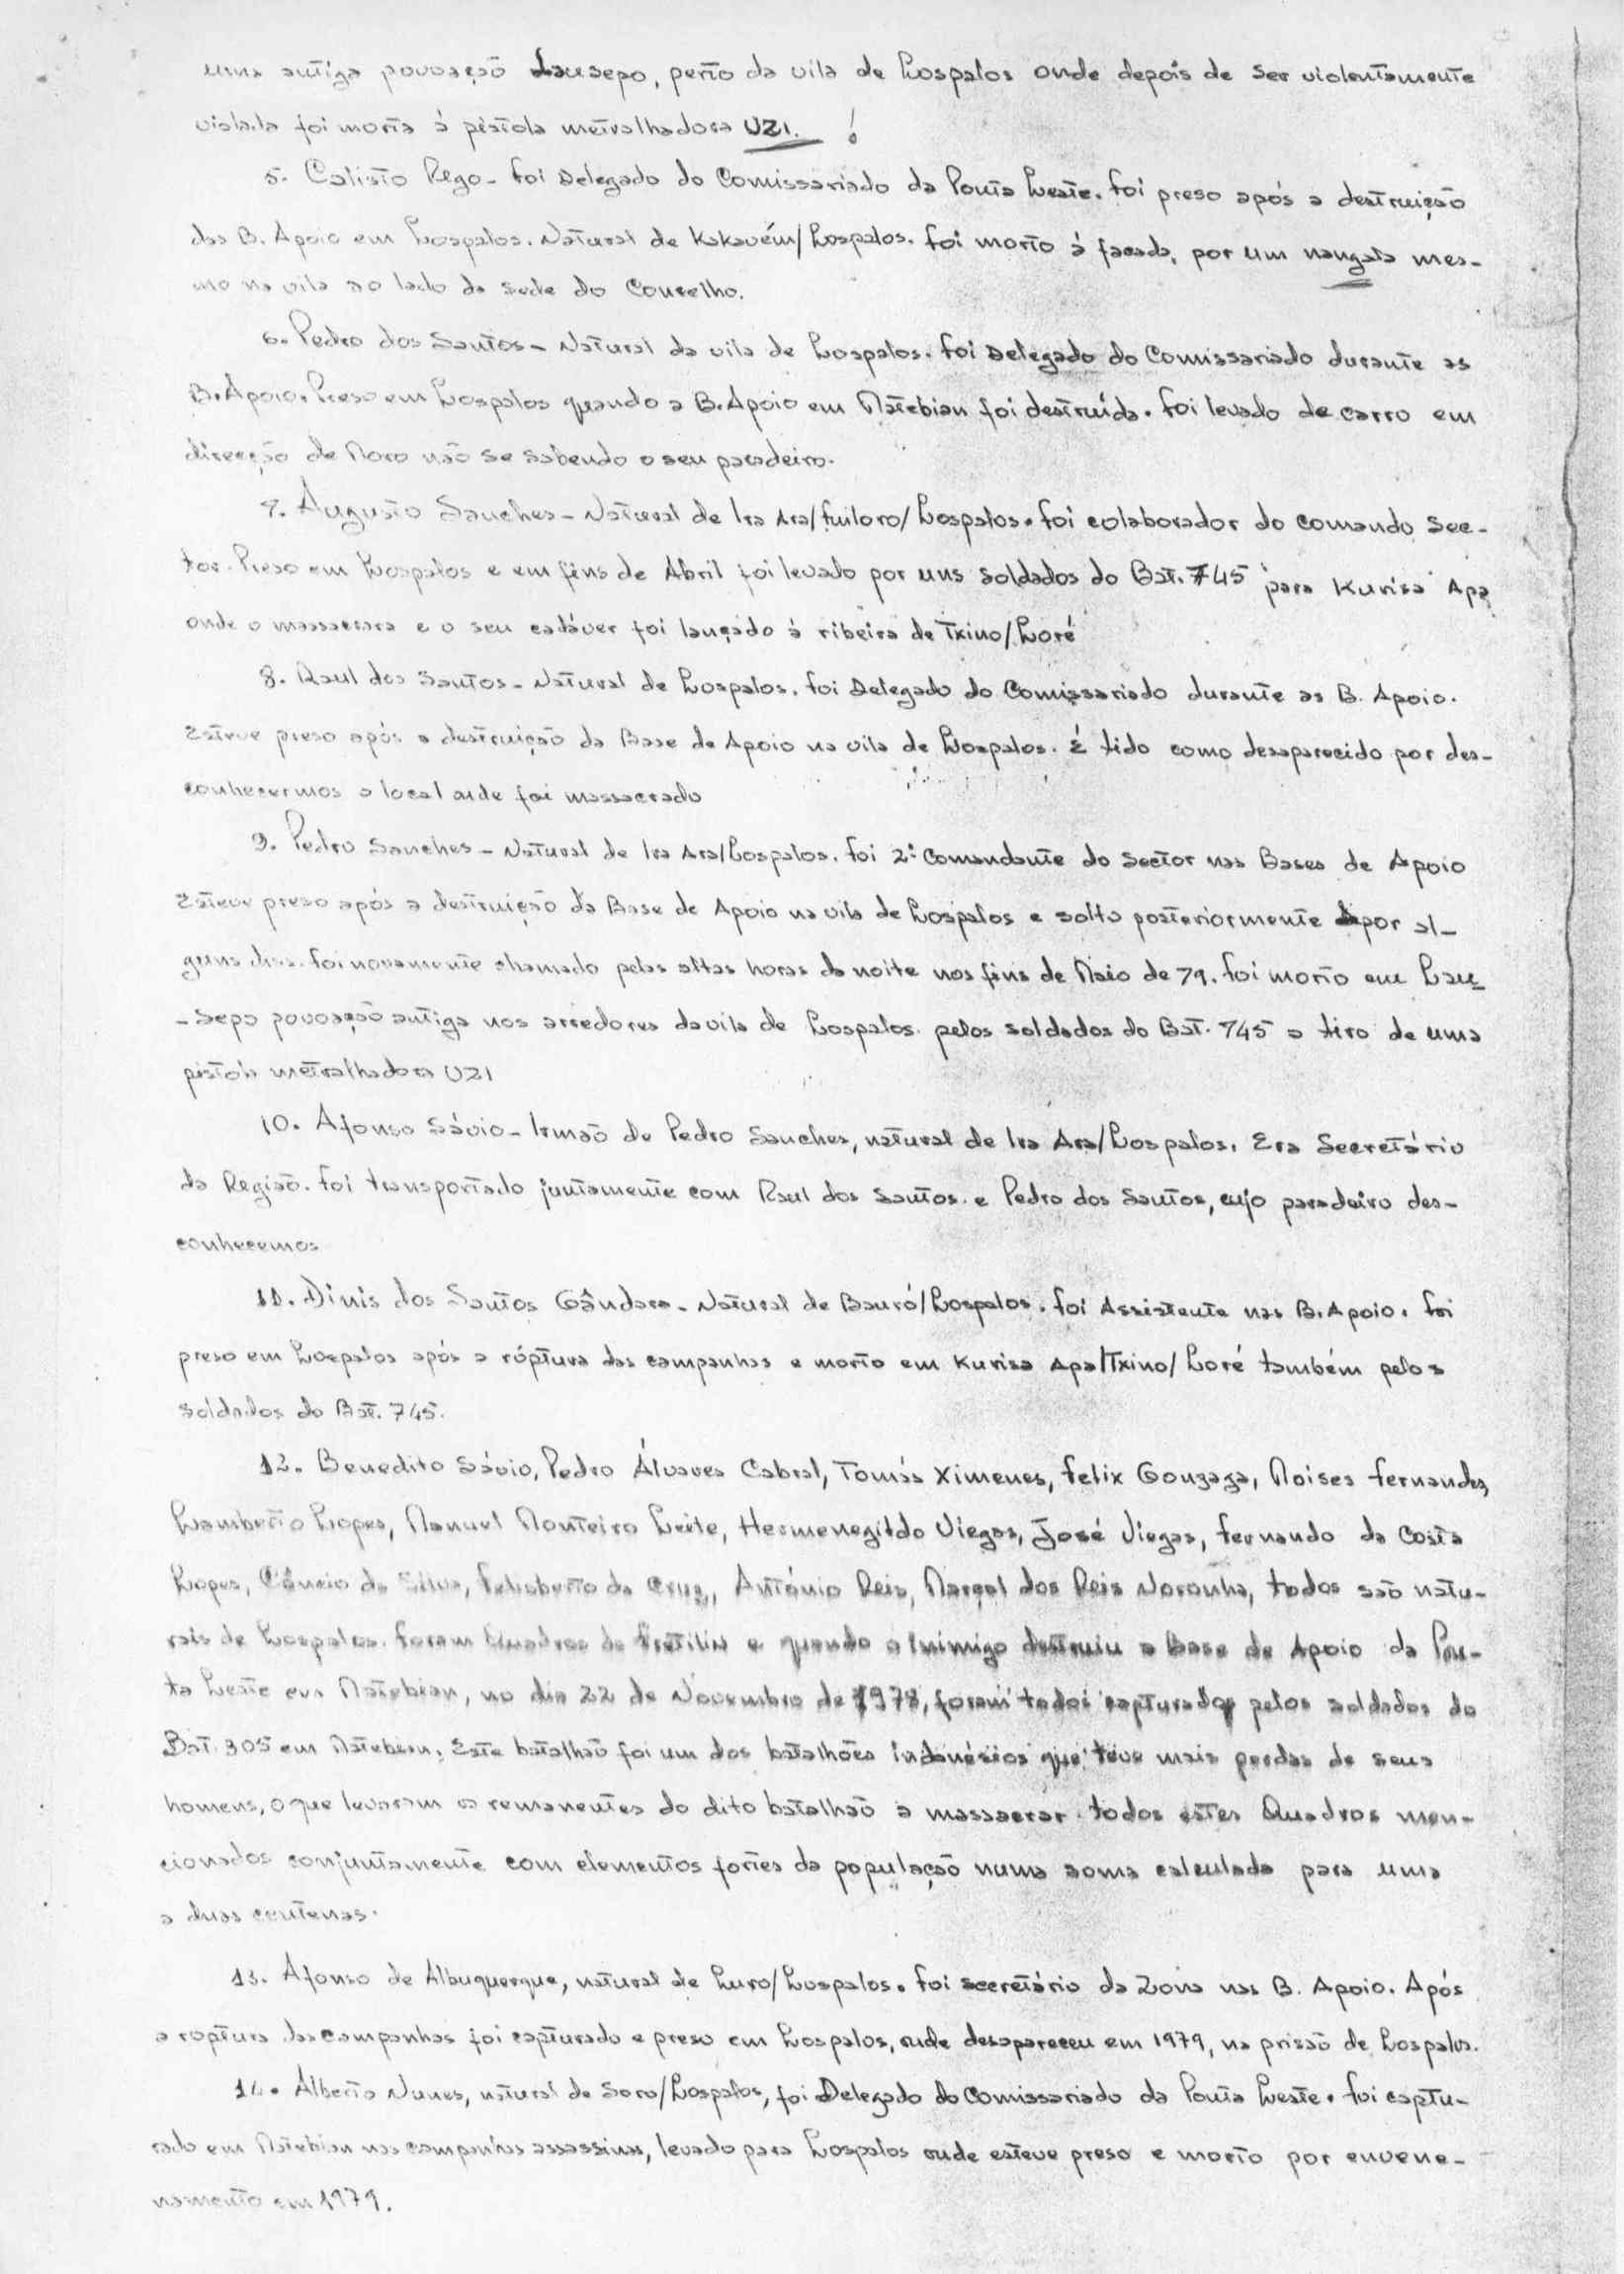 uma antiga povoação Lausepo, perto da vila de Lospalos onde depois de ser violentamente
violada foi morta á pistola metralhadora UZI. !
5. Calisto Rego - Foi Delegado do Comissariado da Ponta Leste. Foi preso após a destruição
das B. Apoio em Lospalos. Natural de Kakavém/Lospalos. Foi morto á facada, por um nangala mes-
mo na vila ao lado da sede do Concelho.
6. Pedro dos Santos - Natural da vila de Lospalos. Foi Delegado do Comissariado durante as
B. Apoio. Preso em Lospalos quando a B. Apoio em Matebian foi destruída. Foi levado de carro em
direcção de Moro não se sabendo o seu paradeiro.
7. Augusto Sanches - Natural de Ira Ara/Fuiloro/Lospalos. Foi colaborador do Comando Sec-
tor. Preso em Lospalos e em fins de Abril foi levado por uns soldados do Bat. 745 para Kurisa Apa
onde o massacrara e o seu cadáver foi lançado á ribeira de Txino/Loré
8. Raul dos Santos - Natural de Lospalos. Foi Delegado do Comissariado durante as B. Apoio.
Esteve preso após a destruição da Base de Apoio na vila de Lospalos. É tido como desaparecido por des-
conhecermos o local onde foi massacrado
9. Pedro Sanches - Natural de Ira Ara/Lospalos. Foi 2º Comandante do Sector nas Bases de Apoio
Esteve preso após a destruição da Base de Apoio na vila de Lospalos e solto posteriormente por al-
guns dias. Foi novamente chamado pelas altas horas da noite nos fins de Maio de 79. Foi morto em Lau-
- sepo povoação antiga nos arredores da vila de Lospalos pelos soldados do Bat. 745 a tiro de uma
pistola metralhadora UZI
10. Afonso Sávio - Irmão de Pedro Sanches, natural de Ira Ara/Lospalos. Era Secretário
da Região. Foi transportado juntamente com Raul dos Santos e Pedro dos Santos, cujo paradeiro des-
conhecemos
11. Dinis dos Santos Gândara - Natural de Bauró/Lospalos. Foi Assistente nas B. Apoio. Foi
preso em Lospalos após a róptura das campanhas e morto em Kurisa Apa/Txino/Loré também pelos
soldados do Bat. 745.
12. Benedito Sávio, Pedro Álvares Cabral, Tomás Ximenes, Felix Gonzaga, Moises Fernandes,
Lamberto Lopes, Manuel Monteiro Leite, Hermenegildo Viegas, José Viegas, Fernando da Costa
Lopes, Câncio da Silva, Felisberto da Cruz, António Reis, Marçal dos Reis Noronha, todos são natu-
rais de Lospalos. Foram Quadros da Fretilin e quando o Inimigo destruiu a Base de Apoio da Pon-
ta Leste em Matebian, no dia 22 de Novembro de 1978, foram todos capturados pelos soldados do
Bat. 305 em Matebian. Este batalhão foi um dos batalhões indonésios que teve mais perdas de seus
homens, o que levaram os remanentes do dito batalhão a massacrar todos estes Quadros men-
cionados conjuntamente com elementos fortes da população numa soma calculada para uma
a duas centenas.
13. Afonso de Albuquerque, natural de Luro/Lospalos. Foi secretário da Zona nas B. Apoio. Após
a roptura das campanhas foi capturado e preso em Lospalos, onde desapareceu em 1979, na prisão de Lospalos.
14. Alberto Nunes, natural de Soro/Lospalos, foi Delegado do Comissariado da Ponta Leste. Foi captu-
rado em Matebian nas campanhas assassinas, levado para Lospalos onde esteve preso e morto por envene-
namento em 1979.